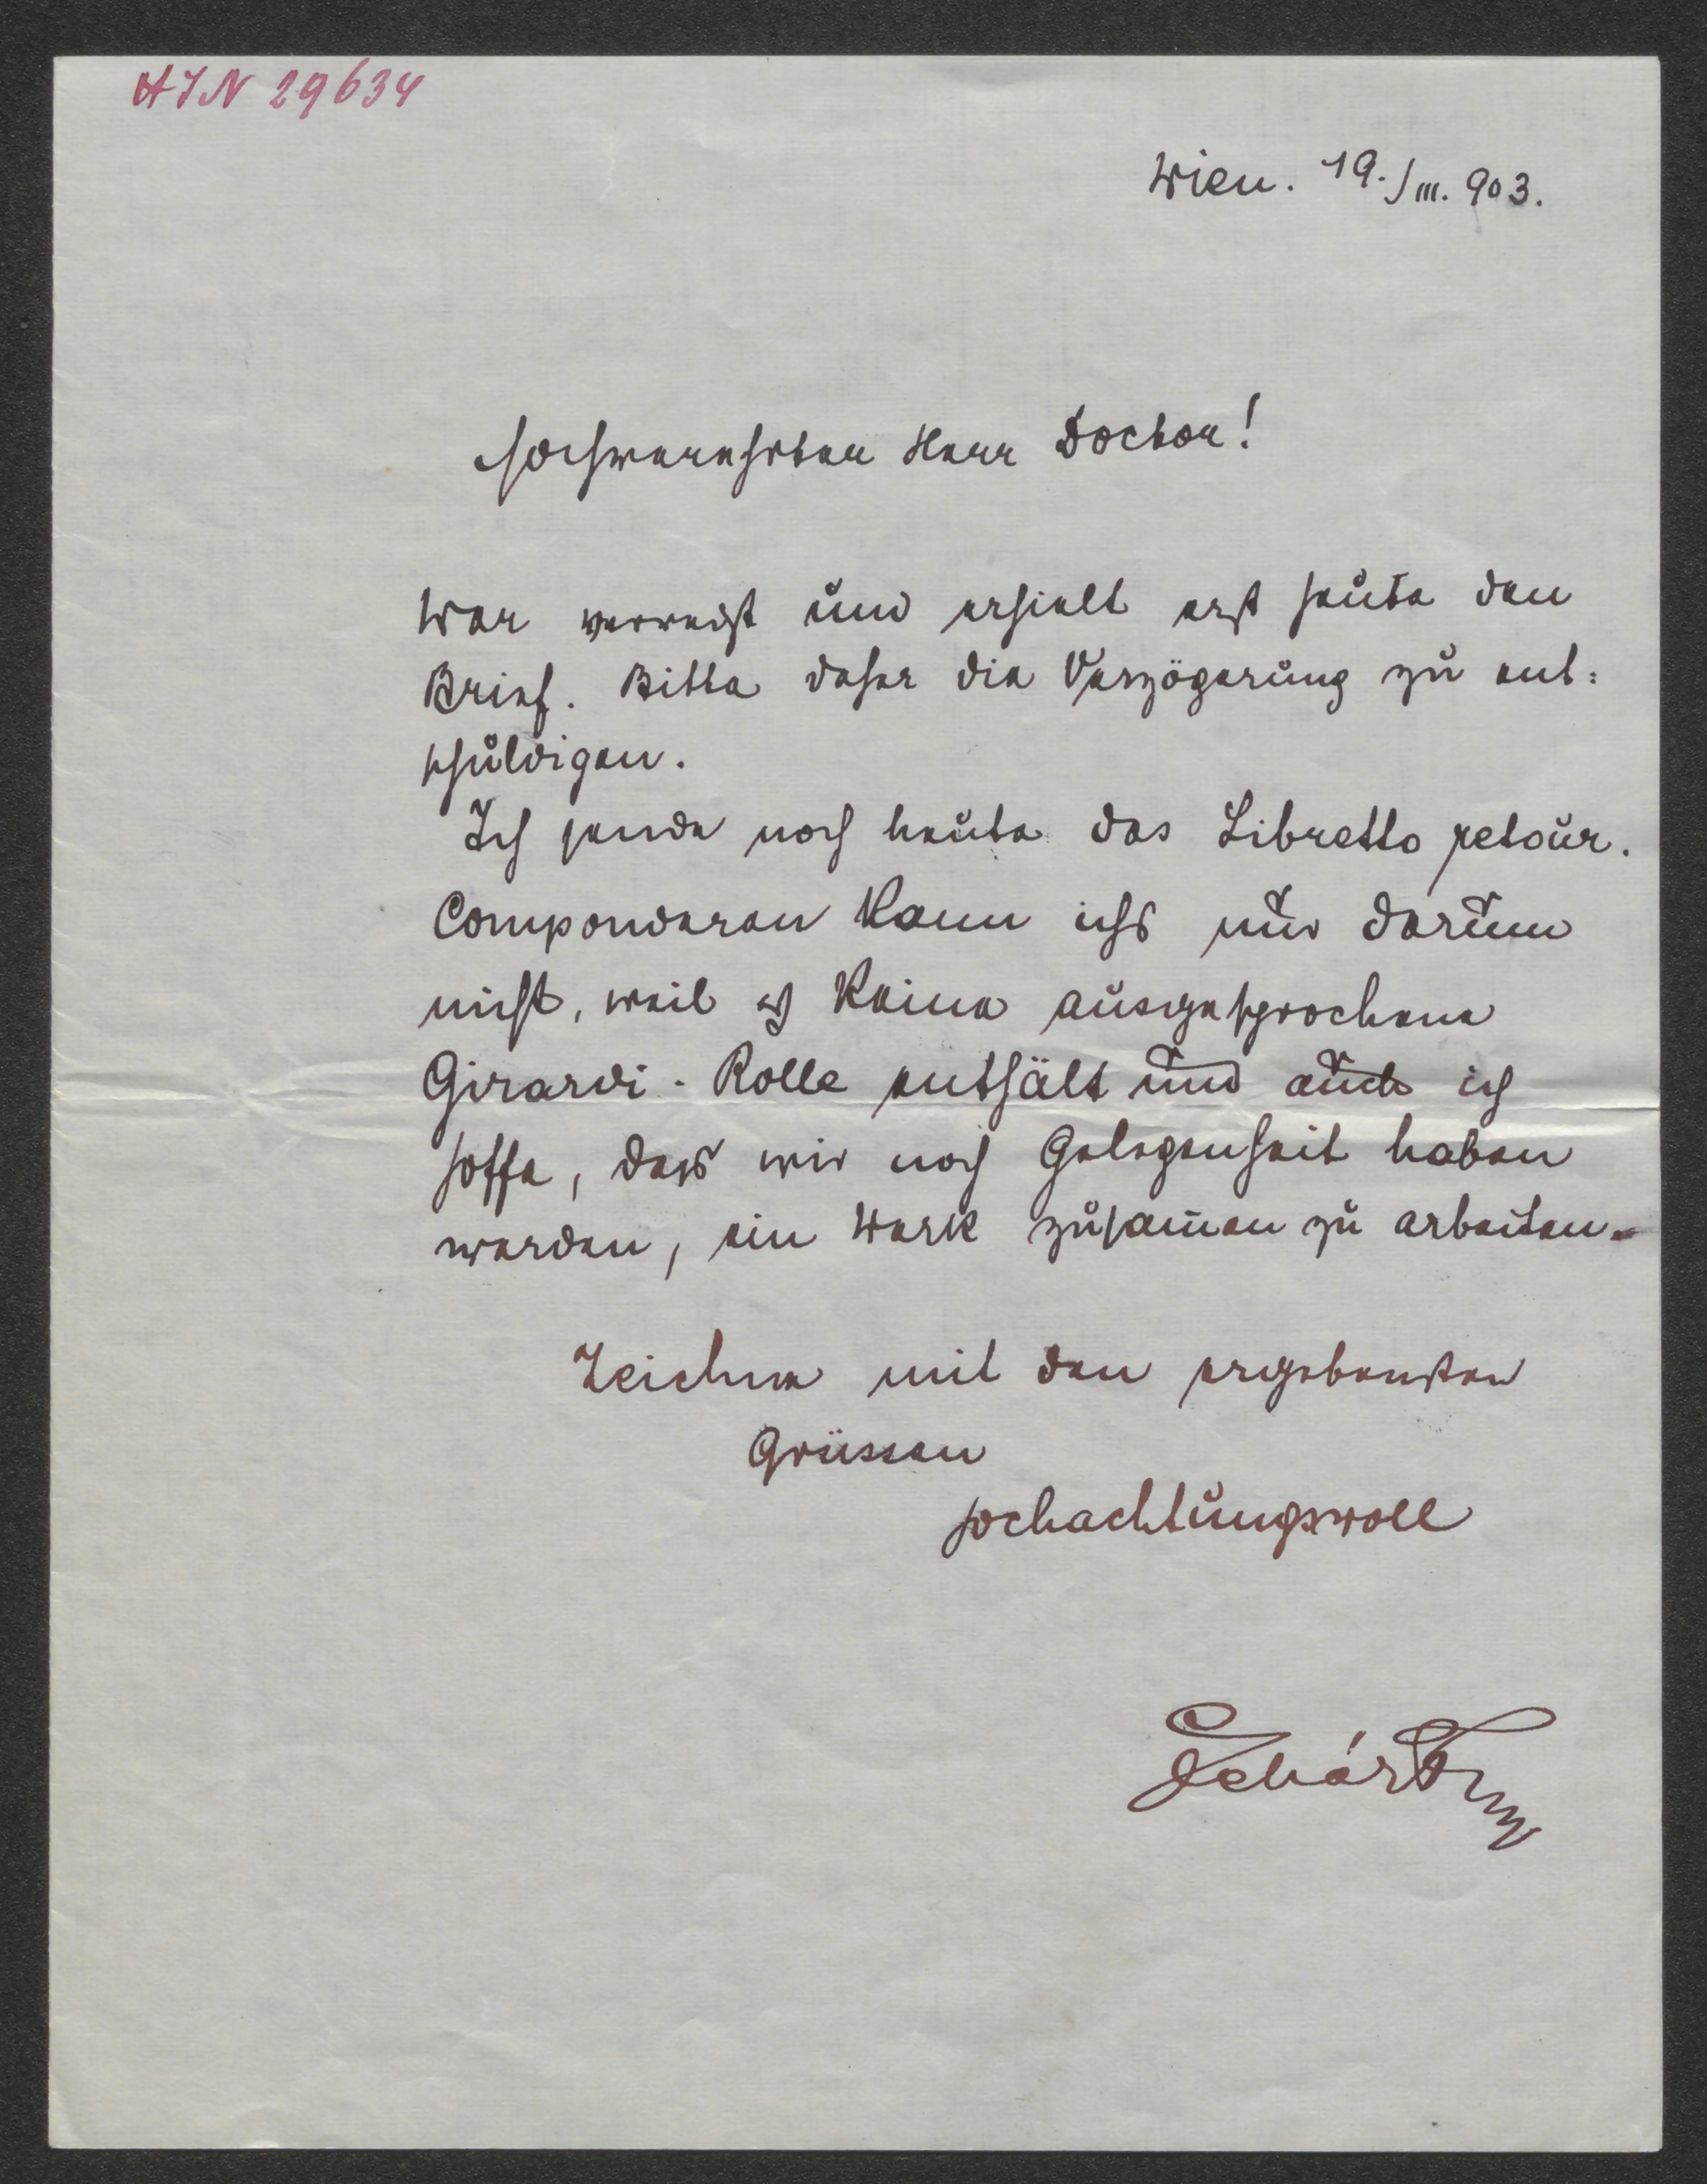 HIN 29634
Wien. 19./III. 903.
Hochverehrter Herr Doctor!
War verreist und erhielt erst heute den
Brief. Bitte daher die Verzögerung zu ent:
schuldigen.
Ich sende noch heute das Libretto retour.
Componieren kann ichs nur darum
nicht, weil es keine ausgesprochene
Girardi-Rolle enthält und auch ich
hoffe, dass wir noch Gelegenheit haben
werden, ein Werk zusam̄en zu arbeiten.
Zeichne mit den ergebensten
Grüssen
hochachtungsvoll
Lehár F